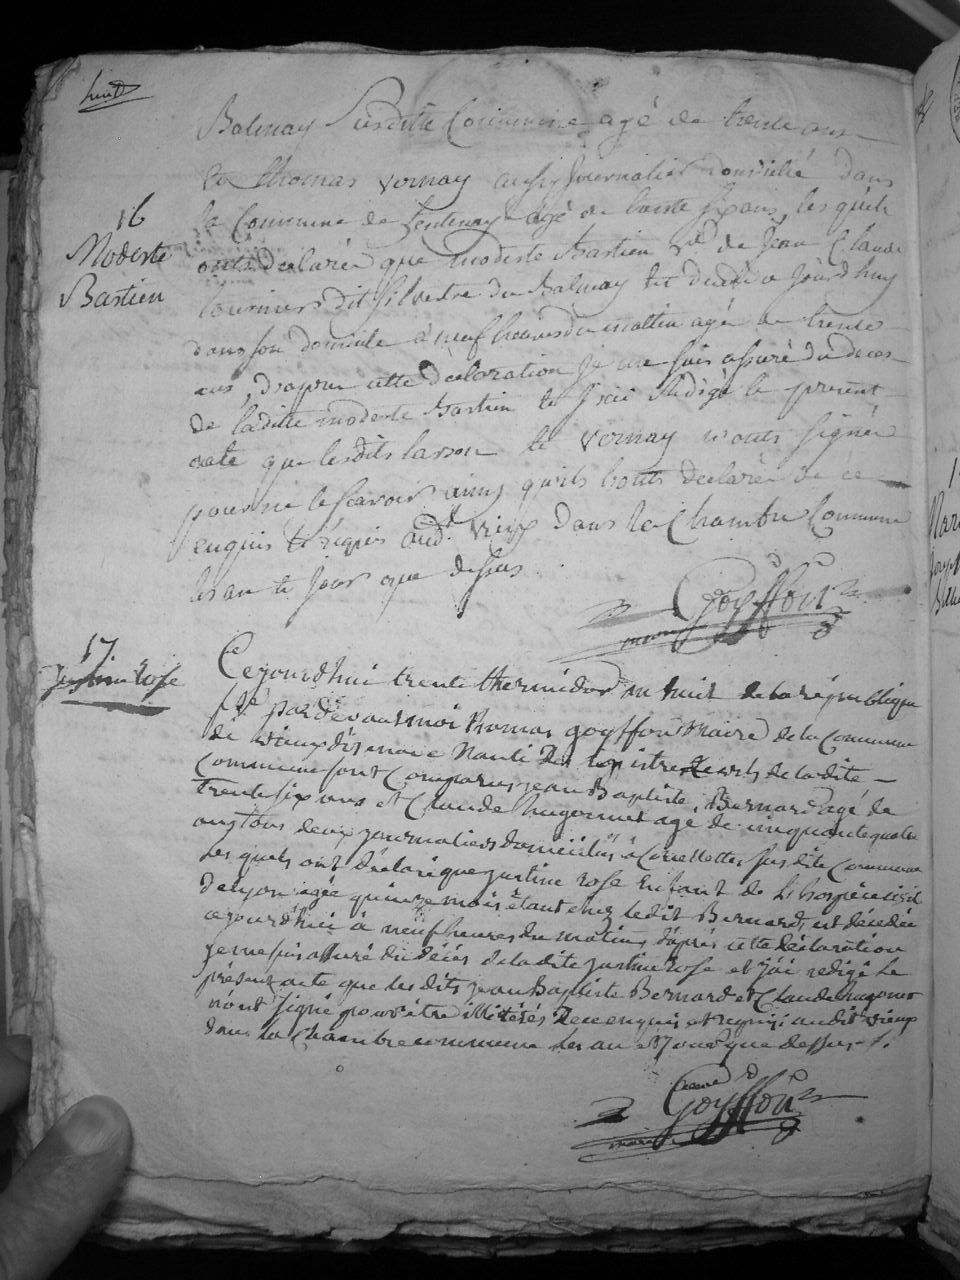 huit
Balmay Susditte Commune agé de trente ans
et Thomas Vernay aussy Journalier domicilié dans
la Commune de agé de trente six ans, les quels
onts declarée que modeste Bastien de Jean Claude
dit Silvestre du Balmay est decedée Jourd'huy
dans son domicile à neuf heures du mattin agé de trente
ans, d'aprer cette declaration Je me suis assuré du deces
de laditte modeste Bastien et J'aie Redigé le present
acte que lesdits et Vernay n'onts signée
pour ne le scavoir ainsy qu'ils l'onts declarée de ce
enquis et requis aud.t Vieux dans la Chambre Commune
les an et Jour que dessus
16
Modeste
Bastien
Goyffon
maire
17
Justine Rose
Ce jourd'hui trente thermidor an huit de la république
f.se par devant moi Thomas goyffon Maire de la Commune
de vieux disenave Nanti des registres de la dite
Commune sont Comparus jean Baptiste Bernard agé de
trente six ans et Claude hugonnet agé de cinquante quatre
ans tous deux journaliers domiciliés à susdite Commune
les quels ont déclaré que justine rose Enfant de L'hospice civil
de lyon agée quinze mois étant chez le dit Bernard, est décédée
ce jourd'hui à neuf heures du matin, d'après cette déclaration
je me suis assuré du décés de la dite justine rose et j'ai redigé le
présent acte que les dits jean Baptiste Bernard et Claude hugonet
n'ont signé pour être illitérés de ce enquis et requis; audit vieux
dans la Chambre commune les an et Jour que dessus
Goyffon
maire